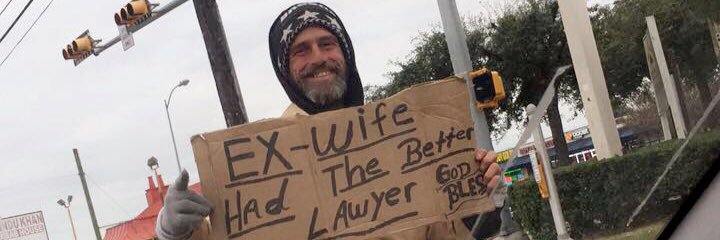 EX-Wife
Had The Better
Lawyer
GOD
Bless
NDU KHAN